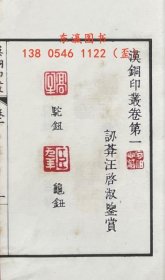 东瀛图书
138 0546 1122
漢銅印叢卷第一
訒葊汪啓淑鑒賞
駝鈕
龜鈕